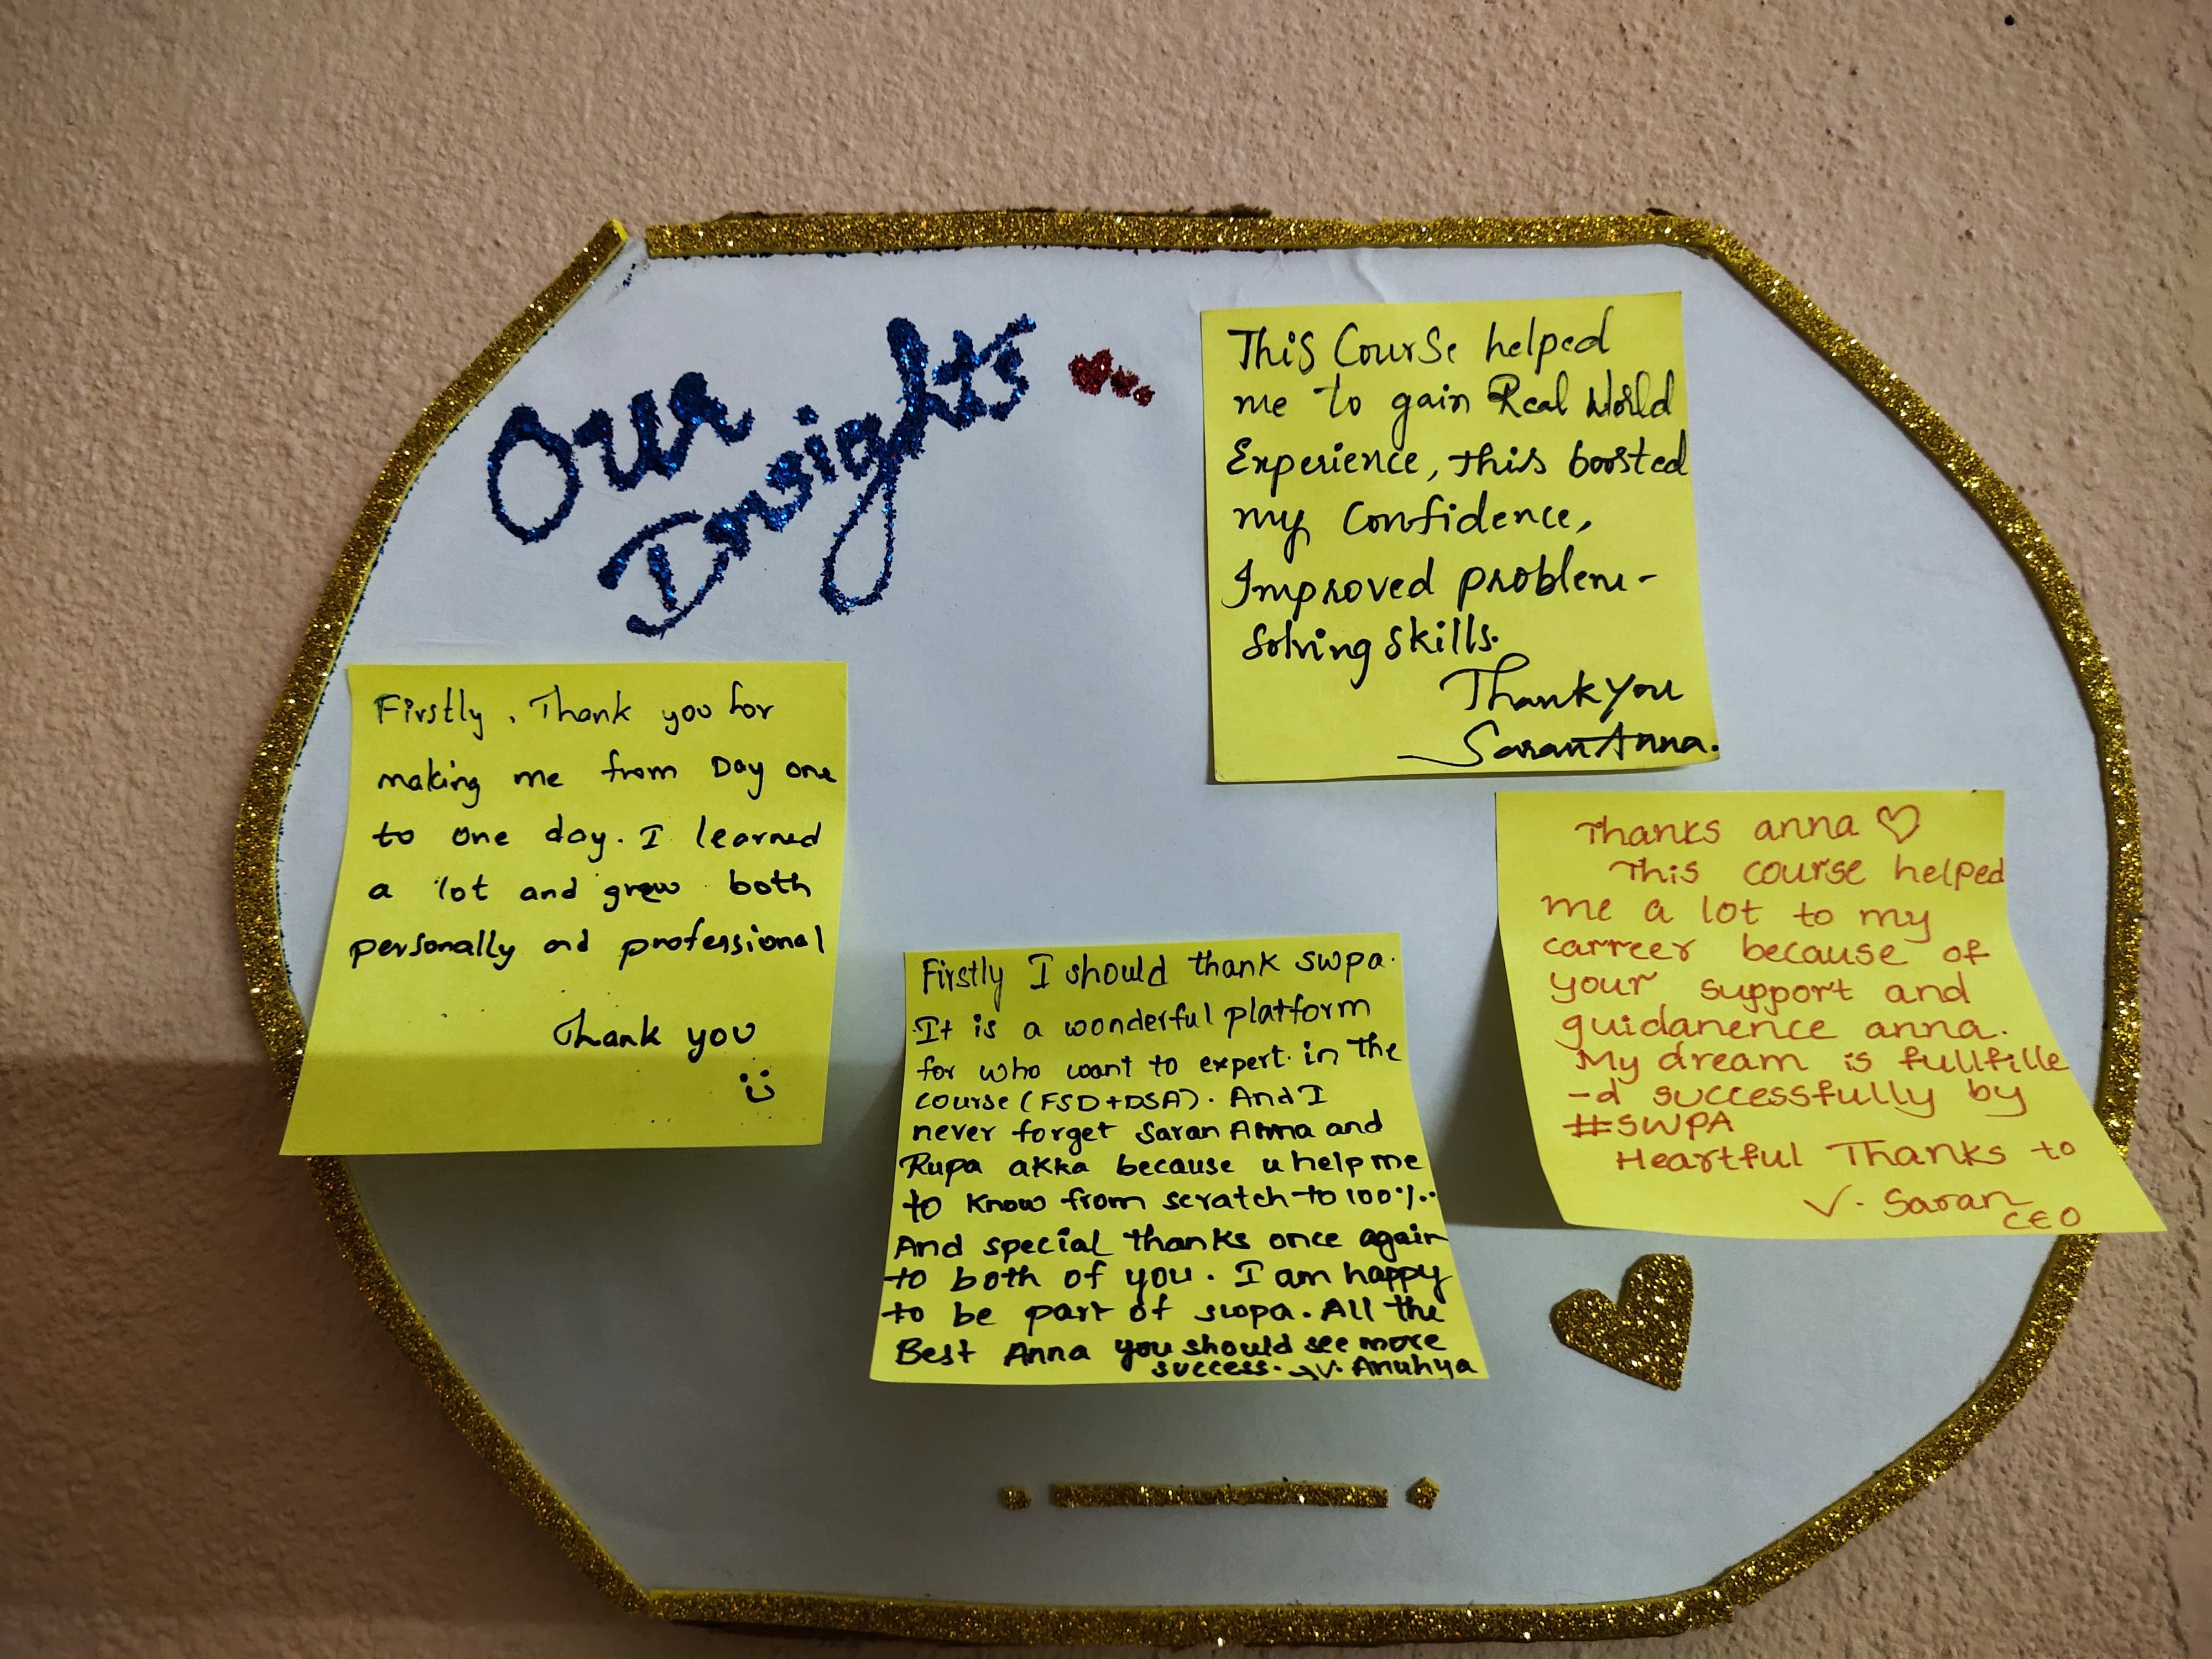 Our
Insights
This Course helped
me to gain Real World
Experience, this boosted
my Confidence,
Improved problem-
Solving skills.
Thank you
Saran Anna.
Firstly, Thank you for
making me from Day one
to one day. I learned
a lot and grew both
personally and professional
Thank you
Thanks anna ♡
This course helped
me a lot to my
carreer because of
your support and
guidanence anna.
My dream is fullfille
-d successfully by
#SWPA
Heartful Thanks to
V. Saran
CEO
Firstly I should thank swpa.
It is a wonderful platform
for who want to expert in the
course (FSD+DSA). And I
never forget Saran Anna and
Rupa akka because u help me
to know from scratch to 100%.
And special thanks once again
to both of you. I am happy
to be part of swpa. All the
Best Anna you should see more
success. → V. Anuhya